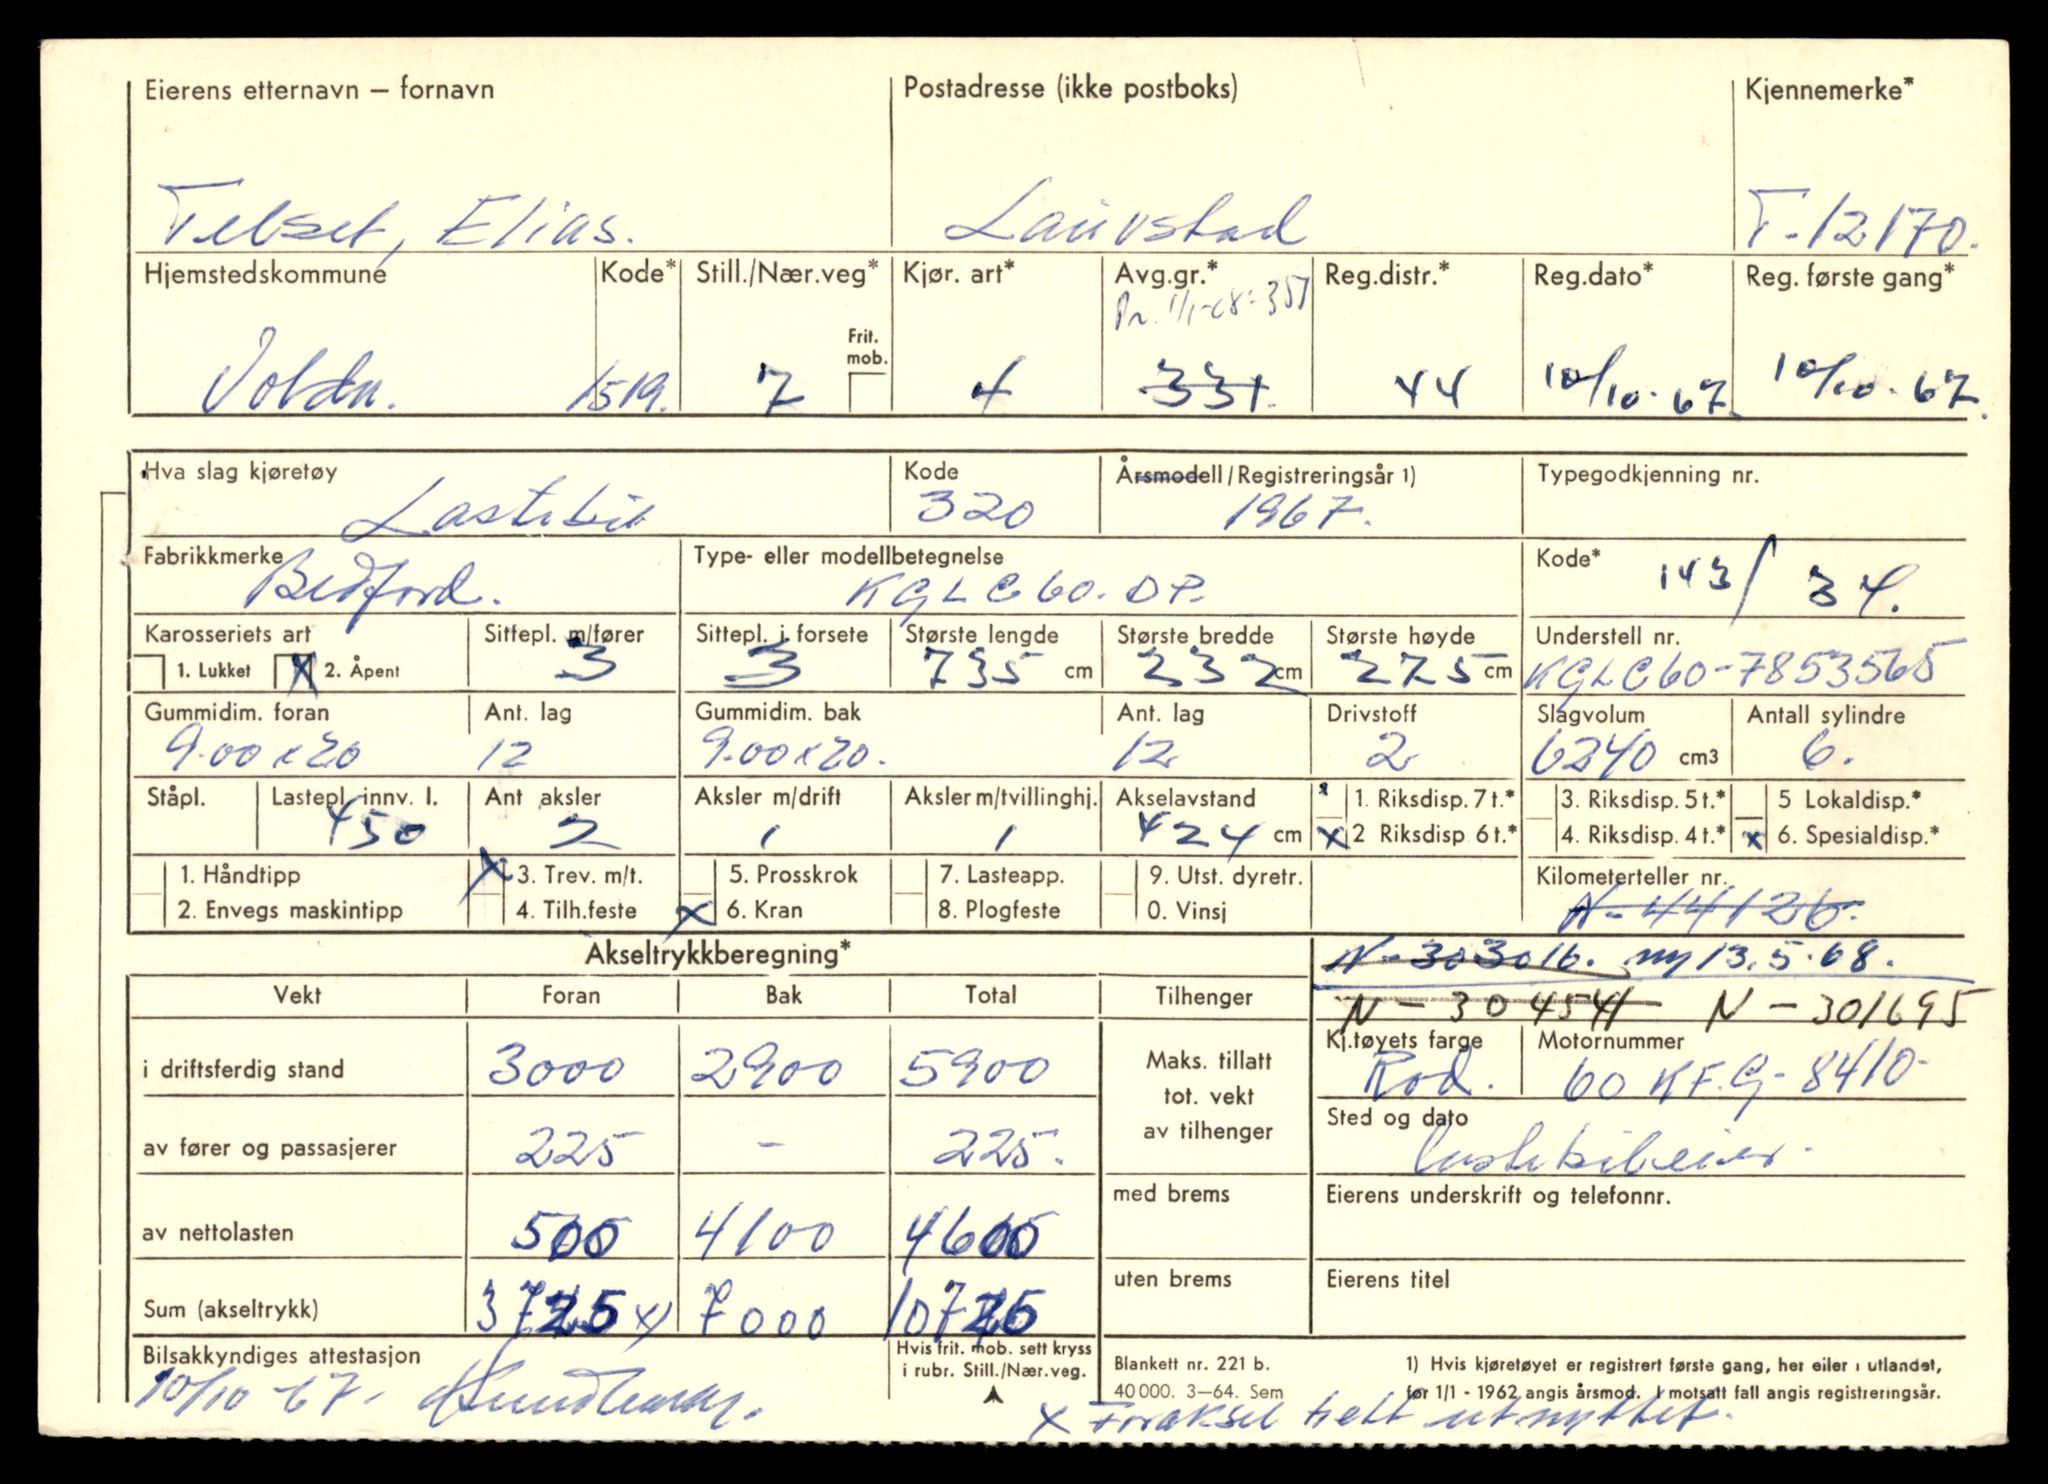 Eierens etternavn — fornavn Postadresse (ikke postboks) Kjennemerke*
Telset, Elias. Lauvstad T-12170.
Hjemstedskommune Kode* Still./Nær.veg* Kjør. art* Avg.gr.* Reg.distr.* Reg.dato* Reg. første gang*
Pr. 1/1-68-351
Frit. mob.
Volda. 1519. 7 4 331. 44 10/10-67. 10/10-67.
Hva slag kjøretøy Kode Årsmodell/Registreringsår 1) Typegodkjenning nr.
Lastebil 320 1967.
Fabrikkmerke Type- eller modellbetegnelse Kode*
Bedford. KGLC60.DP. 143/34.
Karosseriets art Sittepl. m/fører Sittepl. i forsete Største lengde Største bredde Største høyde Understell nr.
1. Lukket x 2. Åpent 3 3 735 cm 232 cm 275 cm KGLC60-7853565
Gummidim. foran Ant. lag Gummidim. bak Ant. lag Drivstoff Slagvolum Antall sylindre
9.00x20 12 9.00x20. 12 2 6240 cm3 6.
Ståpl. Lastepl. innv. l. Ant aksler Aksler m/drift Aksler m/tvillinghj. Akselavstand 1. Riksdisp. 7 t.* 3. Riksdisp. 5 t.* 5 Lokaldisp.*
450 2 1 1 424 cm x 2 Riksdisp 6 t.* 4. Riksdisp. 4 t.* x 6. Spesialdisp.*
1. Håndtipp x 3. Trev. m/t. 5. Prosskrok 7. Lasteapp. 9. Utst. dyretr. Kilometerteller nr.
2. Envegs maskintipp 4. Tilh.feste x 6. Kran 8. Plogfeste 0. Vinsj N-44126.
Akseltrykkberegning* N-303016. ny 13.5.68.
Vekt Foran Bak Total Tilhenger N-304541 N-301695
Kj.tøyets farge Motornummer
i driftsferdig stand 3000 2900 5900 Maks. tillatt tot. vekt av tilhenger Rød. 60 KF.G-8410-
Sted og dato
av fører og passasjerer 225 - 225. lastebileier.
med brems Eierens underskrift og telefonnr.
av nettolasten 500 4100 4600
uten brems Eierens titel
Sum (akseltrykk) 3725 x) 7000 10725
Bilsakkyndiges attestasjon Hvis frit. mob. sett kryss i rubr. Still./Nær.veg. Blankett nr. 221 b. 1) Hvis kjøretøyet er registrert første gang, her eller i utlandet,
10/10-67. 40 000. 3—64. Sem før 1/1 - 1962 angis årsmod. I motsatt fall angis registreringsår.
x Foraksel helt utnyttet.